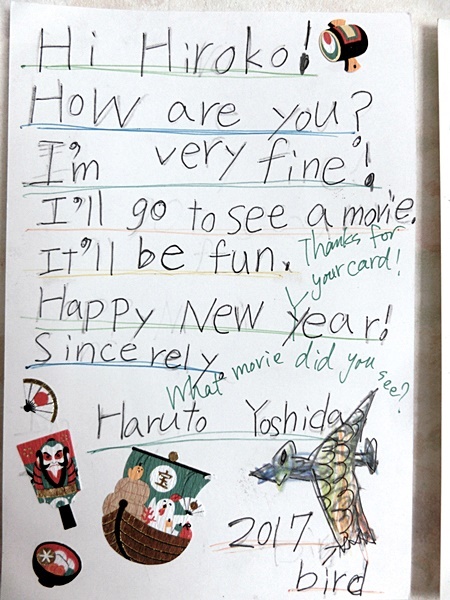 Hi Hiroko!
How are you?
I'm very fine!
I'll go to see a movie.
It'll be fun.
Thanks for
your card!
Happy New Year!
Sincerely,
What movie did you
see?
Haruto Yoshida
宝
2017
bird